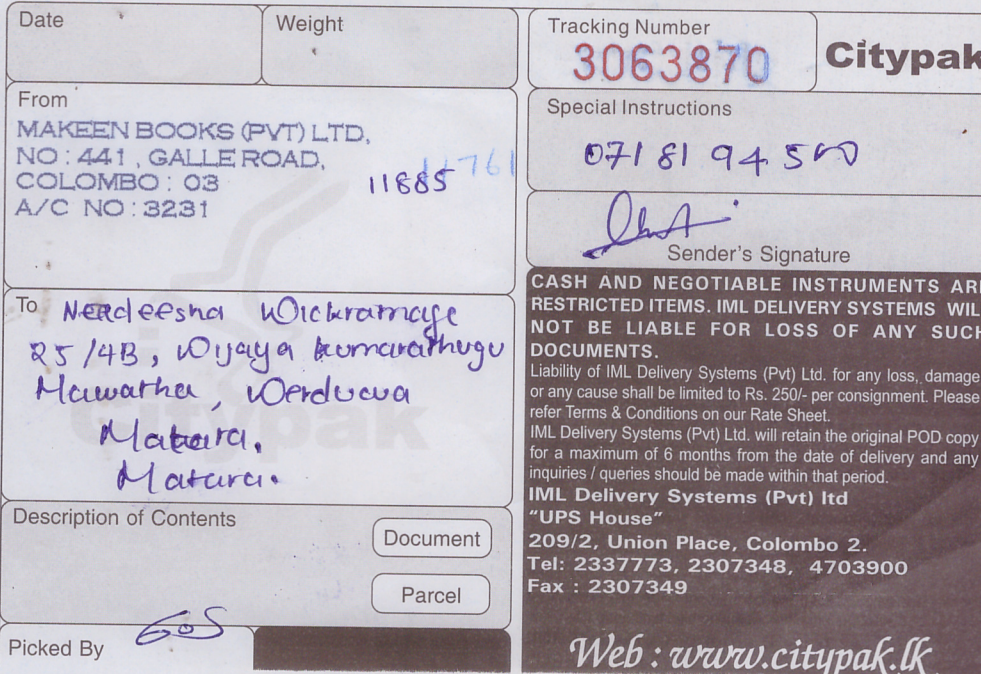 Date
Weight
From
MAKEEN BOOKS (PVT) LTD,
NO : 441 , GALLE ROAD,
COLOMBO : 03
A/C NO : 3231
11885
761
To Needeesha Wickramage
25/4B, Wijaya kumarathugu
Mawatha,
Matara.
Matara.
Citypak
Description of Contents
Document
Parcel
Picked By
Tracking Number
3063870
Citypak
Special Instructions
071 81 94 500
Sender's Signature
CASH AND NEGOTIABLE INSTRUMENTS ARE
RESTRICTED ITEMS. IML DELIVERY SYSTEMS WIL
NOT BE LIABLE FOR LOSS OF ANY SUCH
DOCUMENTS.
Liability of IML Delivery Systems (Pvt) Ltd. for any loss, damage
or any cause shall be limited to Rs. 250/- per consignment. Please
refer Terms & Conditions on our Rate Sheet.
IML Delivery Systems (Pvt) Ltd. will retain the original POD copy
for a maximum of 6 months from the date of delivery and any
inquiries / queries should be made within that period.
IML Delivery Systems (Pvt) ltd
"UPS House"
209/2, Union Place, Colombo 2.
Tel: 2337773, 2307348, 4703900
Fax : 2307349
Web : www.citypak.lk